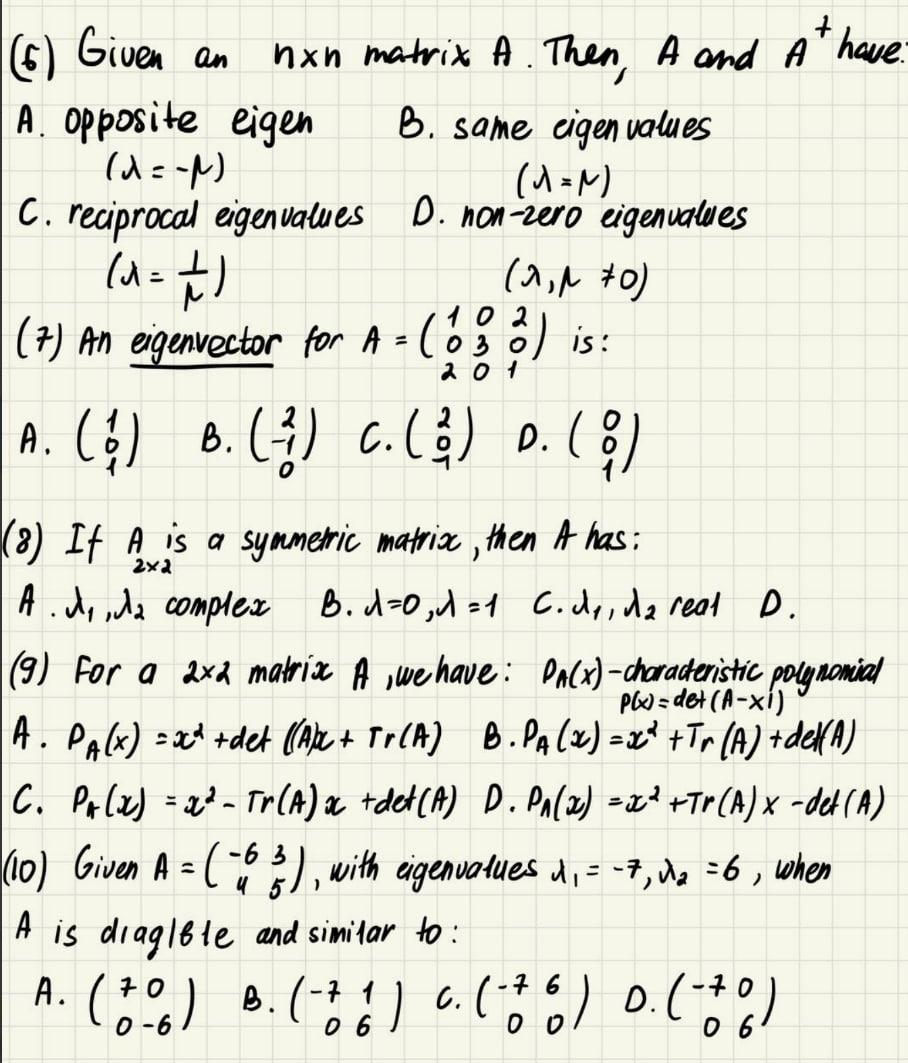 (6) Given an nxn matrix A. Then, A and A^t have:
A. opposite eigen B. same eigenvalues
(λ = -μ) (λ = μ)
C. reciprocal eigenvalues D. non-zero eigenvalues
(λ = 1/μ) (λ, μ ≠ 0)
(7) An eigenvector for A = (1 0 2; 0 3 0; 2 0 1) is:
A. (1; 0; 1) B. (2; -1; 0) C. (2; 0; 1) D. (0; 0; 1)
(8) If A 2x2 is a symmetric matrix, then A has:
A. λ₁, λ₂ complex B. λ=0, λ=1 C. λ₁, λ₂ real D.
(9) For a 2x2 matrix A, we have: P_A(x) - characteristic polynomial
P(x) = det(A - xI)
A. P_A(x) = x² + det((A)x + Tr(A) B. P_A(x) = x² + Tr(A) + det(A)
C. P_A(x) = x² - Tr(A)x + det(A) D. P_A(x) = x² + Tr(A)x - det(A)
(10) Given A = (-6 3; 4 5), with eigenvalues λ₁ = -7, λ₂ = 6, when
A is diaglble and similar to:
A. (7 0; 0 -6) B. (-7 1; 0 6) C. (-7 6; 0 0) D. (-7 0; 0 6)